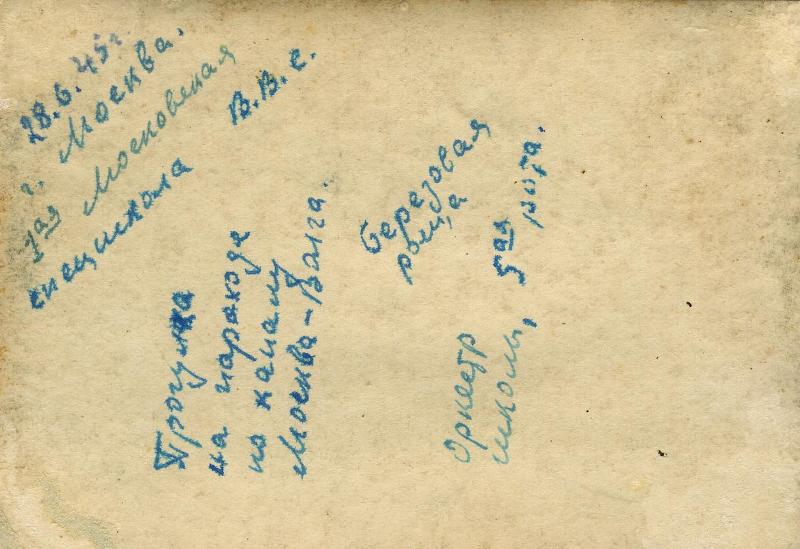 28.6.45 г.
г. Москва.
1ая Московская
спецшкола В.В.С.
Прогулка
на пароходе
по каналу
Москва-Волга.
Березовая
роща
Оркестр
школы, 5ая рота.